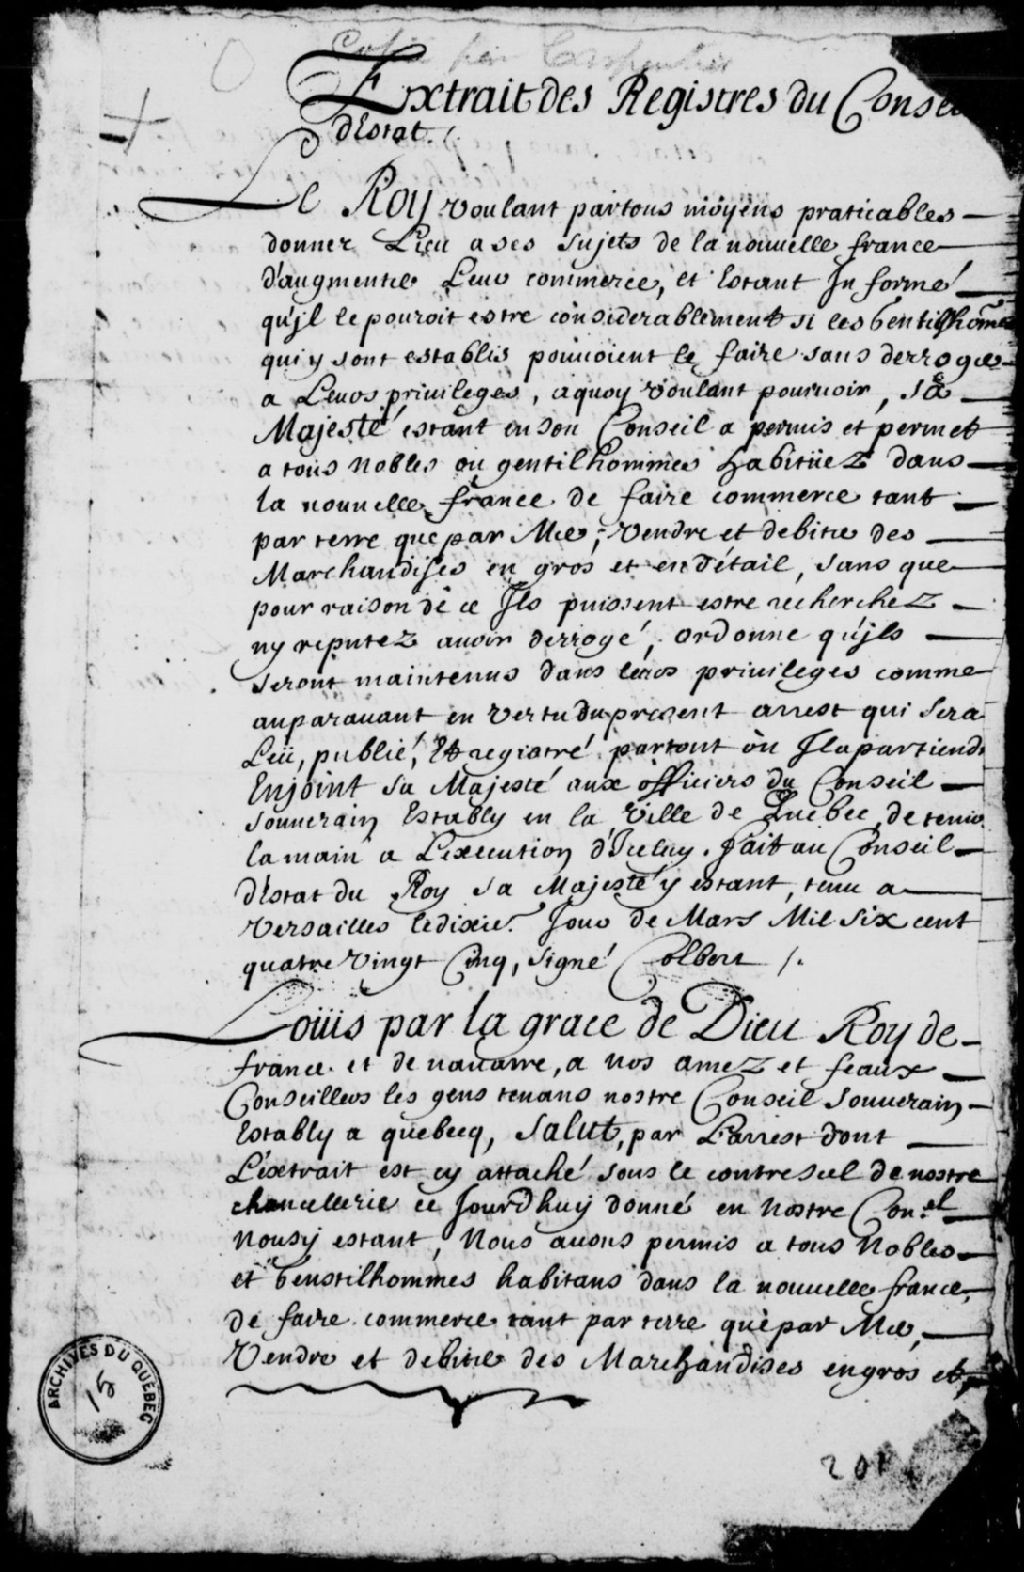 Copié par Carpentier
Extrait des Registres du Conseil
d'Estat ./.
Le Roy voulant par tous moyens praticables
donner Lieu a ses sujets de la nouuelle france
d'augmenter Leur commerce, et Estant Informé
qu'jl le pouroit estre considerablement si les Gentilshom̃es
qui y sont establis pouuoient le faire sans derroger
a Leurs priuileges, a quoy voulant pouruoir, sa
Majesté estant en son Conseil a permis et permet
a tous Nobles ou gentilhommes habitüez dans
la nouuelle france de faire commerce tant
par terre que par Mer, vendre et debiter des
Marchandises en gros et en détail, sans que
pour raison de ce Ils puissent estre recherchez
ny reputez auoir derrogé, ordonne qu'jls
seront maintenus dans leurs priuileges comme
auparauant en vertu du present arrest qui sera
Leü, publié, Et registré partout où Il apartiendr
Enjoint sa Majesté aux officiers du Conseil
souuerain Estably en la ville de Quebec, de tenir
la main a L'execution d'Iceluy. fait au Conseil
d'Estat du Roy sa Majesté y estant, tenu a
Versailles le dixie. Jour de Mars Mil six cent
quatre vingt Cinq, signé Colbert /.
Loüis par la grace de Dieu Roy de
france et de nauarre, a nos amez et feaux
Conseillers les gens tenans nostre Conseil souuerain
Estably a quebecq, salut, par L'arrest dont
L'extrait est cy attaché sous le contrescel de nostre
chancellerie ce Jourdhuy donné en nostre Con.el
nous y estant, Nous auons permis a tous Nobles
et Genstilhommes habitans dans la nouuelle france,
de faire commerce tant par terre que par Mer,
Vendre et debiter des Marchandises en gros et
ARCHIVES DU QUEBEC
15
201